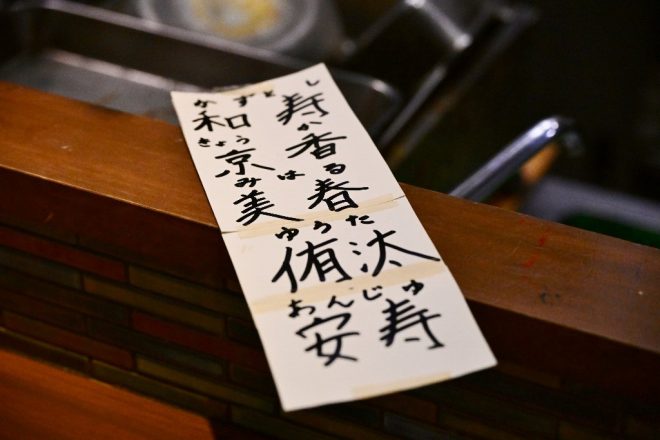 かずとし
和寿
きょうか
京香
みはる
美春
ゆうた
侑汰
あんじゅ
安寿